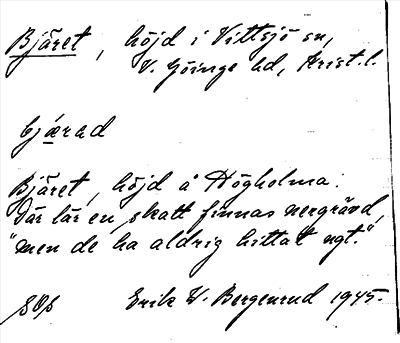 Bjäret, höjd i Vittsjö sn,
V. Göinge hd, Krist. l.
bjærad
Bjäret, höjd å Högholma.
Där lär en skatt finnas nergrävd,
"men de ha aldrig hittat ngt."
Erik W. Bergenrud 1945.